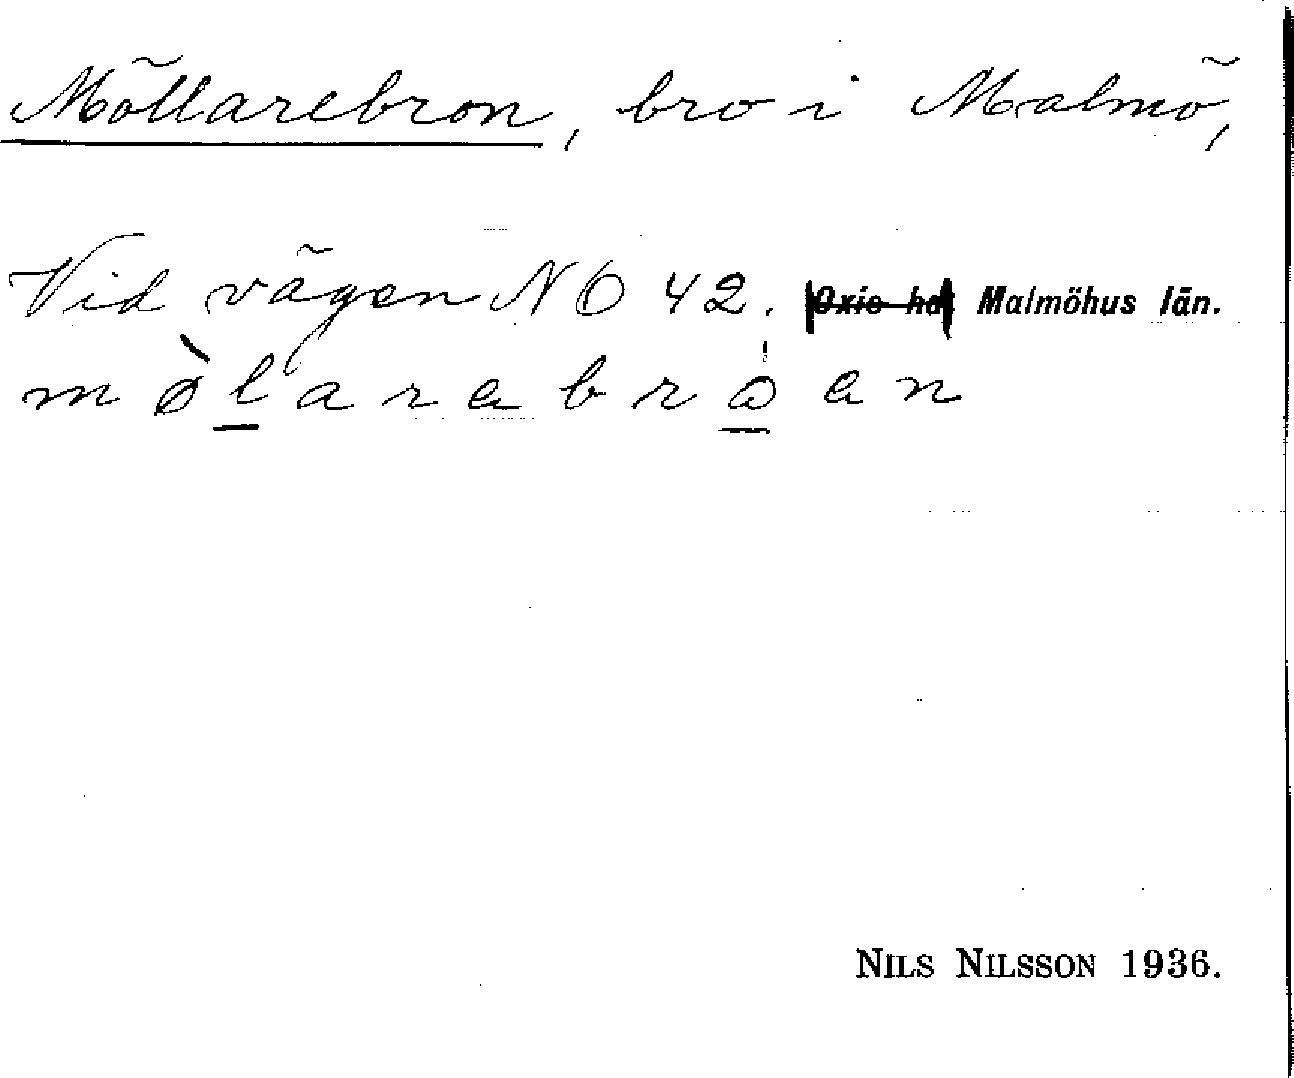 Möllarebron, bro i Malmö,
Vid vägen NO 42. Oxie hd Malmöhus län.
mølarebroen
NILS NILSSON 1936.